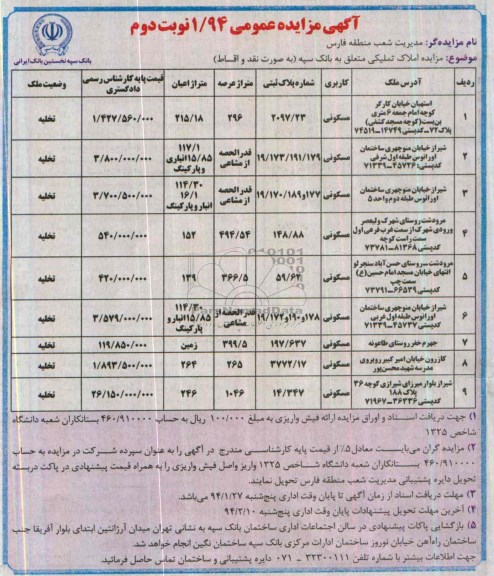 آگهی مزایده عمومی ۱/۹۴ نوبت دوم
نام مزایده‌گر: مدیریت شعب منطقه فارس
موضوع: مزایده املاک تملیکی متعلق به بانک سپه (به صورت نقد و اقساط)
بانک سپه نخستین بانک ایرانی
ردیف آدرس ملک کاربری شماره پلاک ثبتی متراژ عرصه متراژ اعیان قیمت پایه کارشناس رسمی دادگستری وضعیت ملک
۱ استهبان خیابان کارگر کوچه امام جمعه ۶ متری بن‌بست (کوچه مسجد کشفی) پلاک ۷۲ـ کدپستی ۱۴۷۴۹ـ ۷۴۵۱۹ مسکونی ۲۰۹۷/۲۳ ۲۹۶ ۲۱۵/۱۸ ۱/۴۲۷/۵۶۰/۰۰۰ تخلیه
۲ شیراز خیابان منوچهری ساختمان اورانوس طبقه اول شرقی کدپستی: ۴۵۷۲۶ـ ۷۱۳۳۹ مسکونی ۱۹/۱۷۳/۱۹۱/۱۷۹ قدرالحصه از مشاعی ۱۱۷/۱ ۱۵/۸۵انباری و پارکینگ ۳/۸۰۰/۰۰۰/۰۰۰ تخلیه
۳ شیراز خیابان منوچهری ساختمان اورانوس طبقه دوم واحد ۵ مسکونی ۱۷۷و۱۹/۱۷۰/۱۸۹ قدرالحصه از مشاعی ۱۱۴/۳۰ ۱۶/۱ انبار و پارکینگ ۳/۷۰۰/۵۰۰/۰۰۰ تخلیه
۴ مرودشت روستای شهرک ولیعصر ورودی شهرک از سمت غرب فرعی اول سمت راست کوچه کدپستی ۸۱۳۶۸ـ ۷۳۷۸۱ مسکونی ۱۴۸/۸۸ ۴۹۴/۵۴ ۱۵۲ ۵۴۰/۰۰۰/۰۰۰ تخلیه
۵ مرودشت ـ روستای حسن آباد سنجرلو انتهای خیابان مسجد امام حسین (ع) سمت چپ کدپستی ۶۶۵۳۹ـ ۷۳۷۹۱ مسکونی ۵۹/۶۲ ۳۶۶/۵ ۱۳۹ ۴۲۰/۰۰۰/۰۰۰ تخلیه
۶ شیراز خیابان منوچهری ساختمان اورانوس طبقه اول غربی کدپستی ۴۵۷۳۷ـ ۷۱۳۳۹ مسکونی ۱۷۸و۱۹۰و۱۹/۱۷۲ قدرالحصه از مشاعی ۱۱۴/۳۰ ۱۵/۸۵انبار و پارکینگ ۳/۵۷۹/۰۰۰/۰۰۰ تخلیه
۷ جهرم خفر روستای طاعونه مسکونی ۱۹۷/۶۳۷ ۳۹۹/۵ زمین ۱۱۹/۸۵۰/۰۰۰ تخلیه
۸ کازرون خیابان امیر کبیر روبروی مدرسه شهید محسن‌پور مسکونی ۳۷۷۲/۱۷ ۲۶۵ ۲۶۴ ۱/۸۹۳/۵۰۰/۰۰۰ تخلیه
۹ شیراز بلوار میرزای شیرازی کوچه ۳۶ پلاک ۱۸۸ کدپستی ۳۶۳۳۶ـ ۷۱۹۶۷ مسکونی ۱۴/۳۴۷ ۱۰۴۶ ۲۴۶ ۲۶/۱۵۰/۰۰۰/۰۰۰ تخلیه
۱) جهت دریافت اسناد و اوراق مزایده ارائه فیش واریزی به مبلغ ۱۰۰/۰۰۰ ریال به حساب ۴۶۰/۹۱۰۰۰۰ بستانکاران شعبه دانشگاه
شاخص ۱۳۲۵
۲) مزایده گران می‌بایست معادل ۵٪ از قیمت پایه کارشناسی مندرج در آگهی را به عنوان سپرده شرکت در مزایده به حساب
۴۶۰/۹۱۰۰۰۰ بستانکاران شعبه دانشگاه شاخص ۱۳۲۵ واریز واصل فیش واریزی را به همراه قیمت پیشنهادی در پاکت دربسته
تحویل دایره پشتیبانی مدیریت شعب منطقه فارس تحویل نمایند.
۳) مهلت دریافت اسناد از زمان آگهی تا پایان وقت اداری پنج‌شنبه ۹۴/۱/۲۷ می‌باشد.
۴) آخرین مهلت تحویل پیشنهادات پایان وقت اداری پنج‌شنبه ۹۴/۲/۱۰
۵) بازگشایی پاکات پیشنهادی در سالن اجتماعات اداری ساختمان بانک سپه به نشانی تهران میدان آرژانتین ابتدای بلوار آفریقا جنب
ساختمان راه‌آهن خیابان نوروز ساختمان ادارات مرکزی بانک سپه ساختمان نگین انجام خواهد شد.
جهت اطلاعات بیشتر با شماره تلفن ۳۲۳۰۰۱۱۱ ـ ۰۷۱ دایره پشتیبانی و ساختمان تماس حاصل فرمائید.